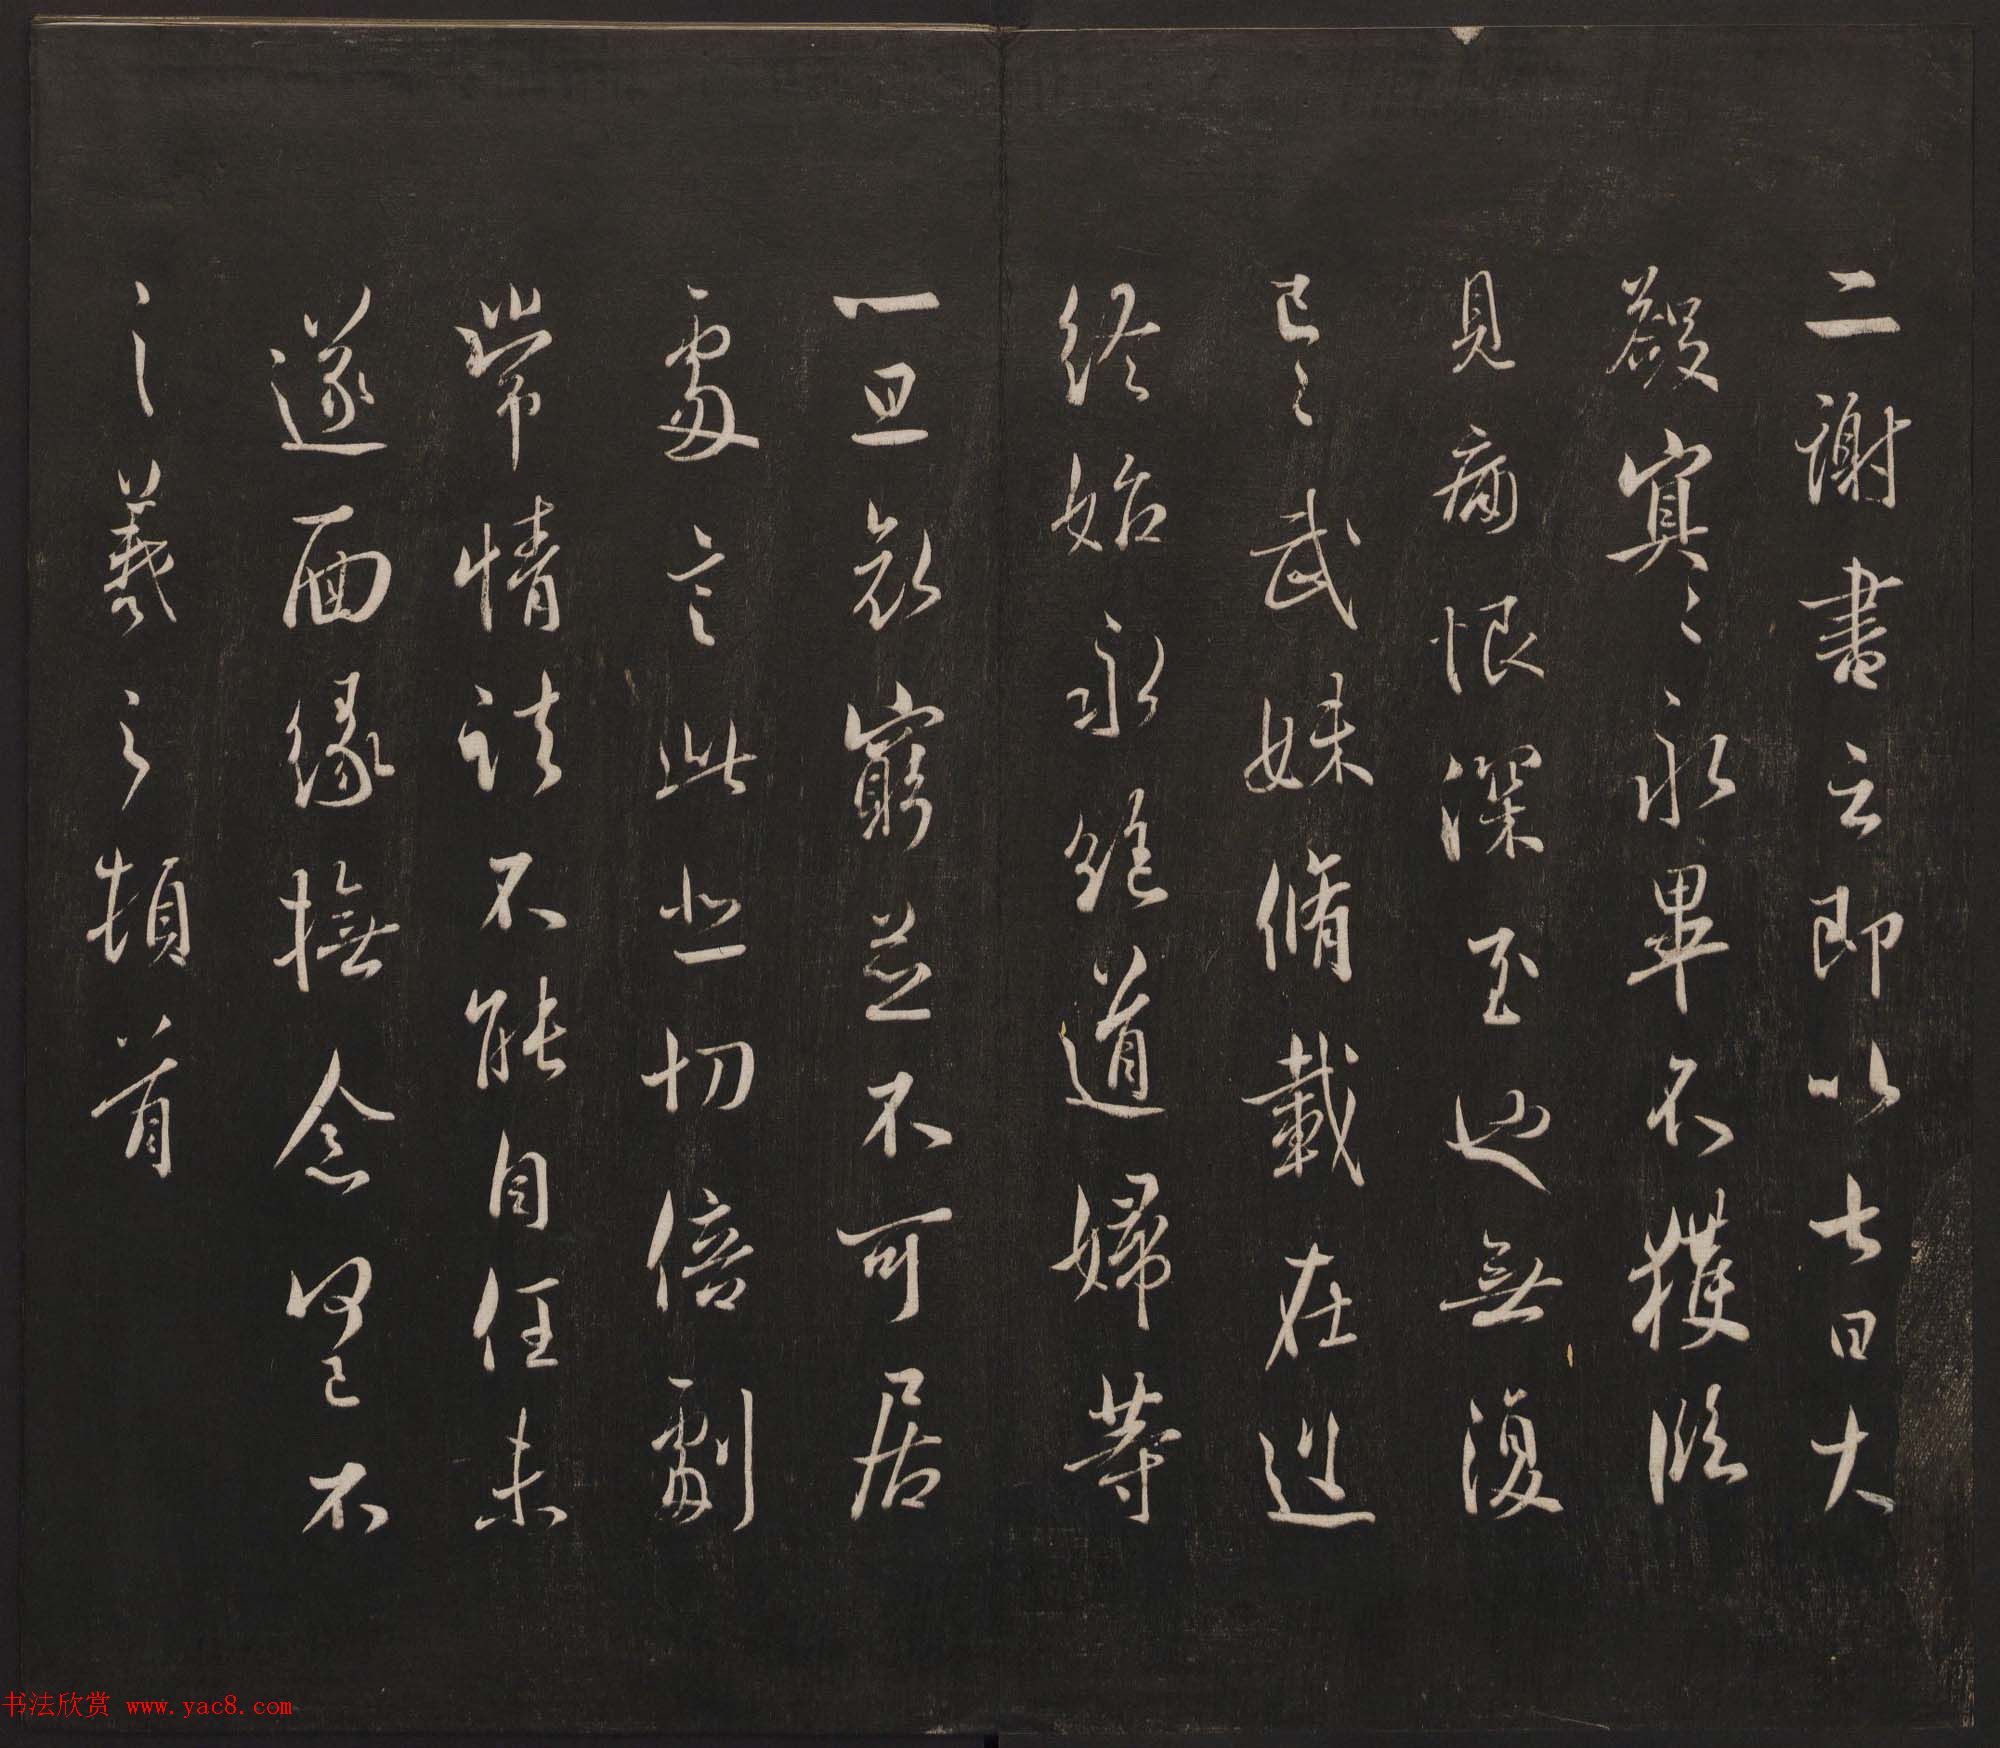 二謝書云即以七日大
殮冥冥永畢不獲臨
見痛恨深至也無復
已已武妹脩載在道
終始永絕道婦等
一旦哀窮並不可居
處言此悲切倍劇
常情諸不能自任未
遂面緣撫念何已不
一一羲之頓首
书法欣赏 www.yac8.com